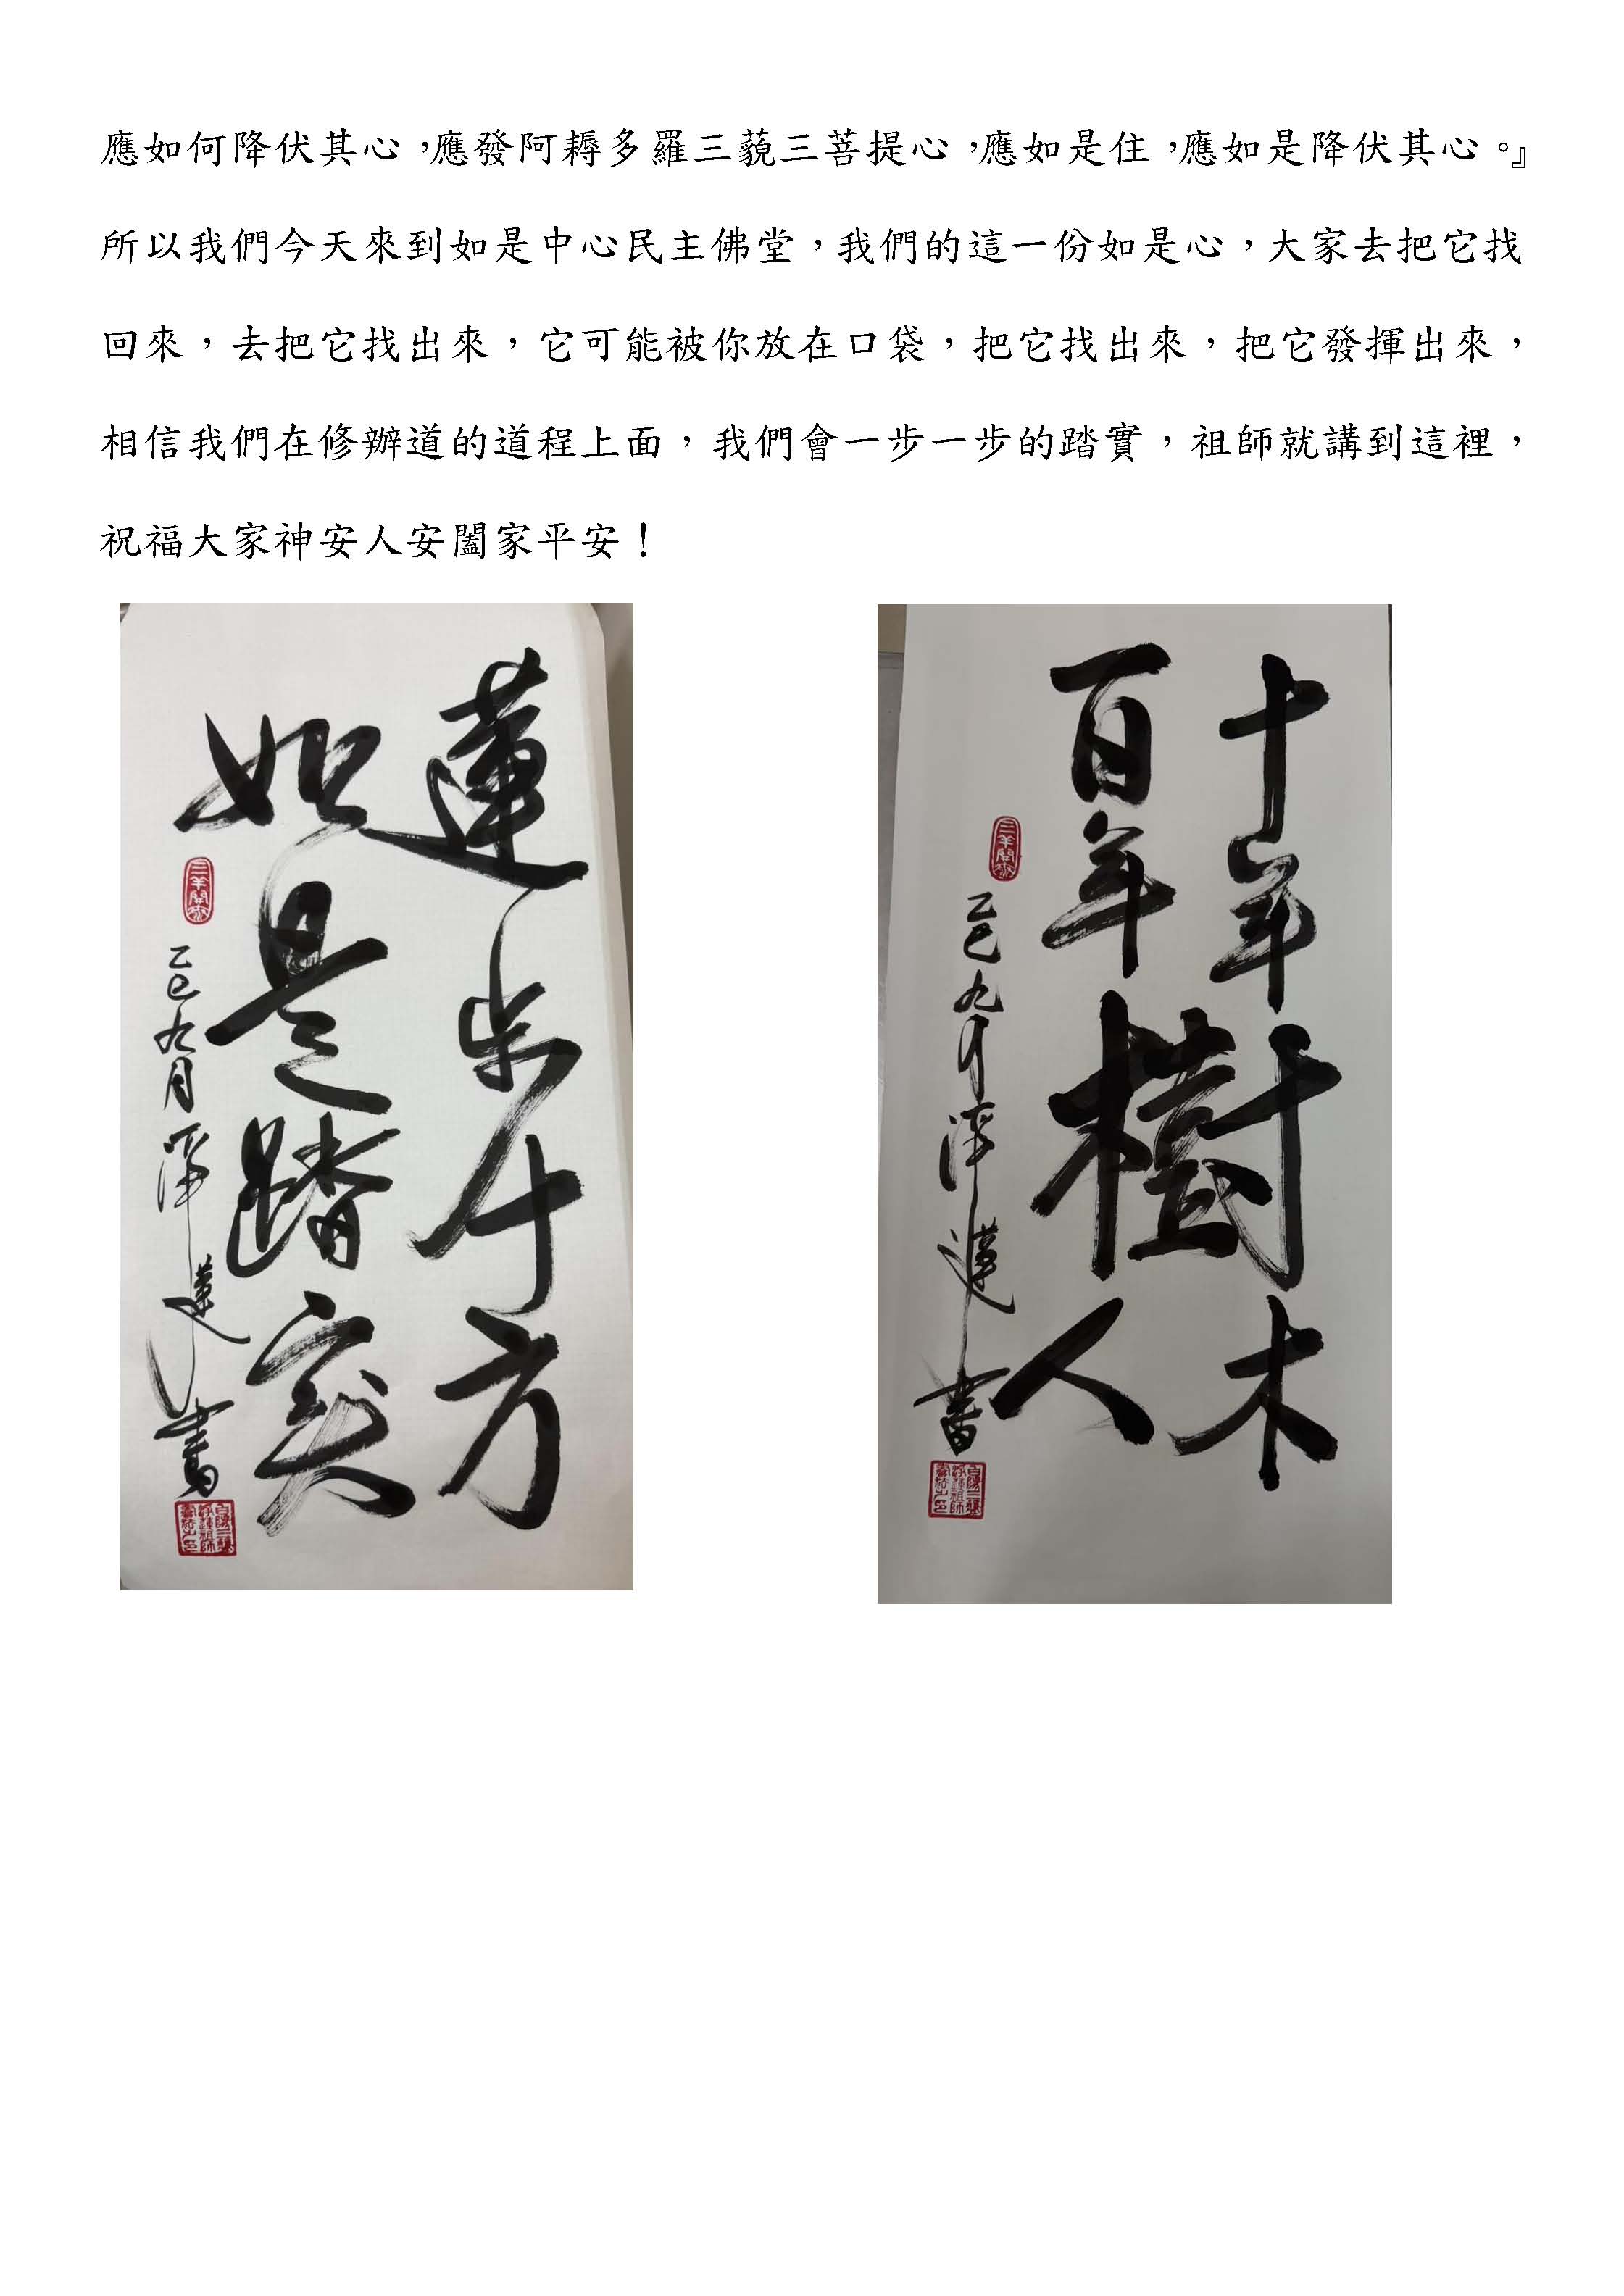 應如何降伏其心，應發阿耨多羅三藐三菩提心，應如是住，應如是降伏其心。』
所以我們今天來到如是中心民主佛堂，我們的這一份如是心，大家去把它找
回來，去把它找出來，它可能被你放在口袋，把它找出來，把它發揮出來，
相信我們在修辦道的道程上面，我們會一步一步的踏實，祖師就講到這裡，
祝福大家神安人安闔家平安！
蓮步十方
如是踏實
三羊開泰
乙巳九月淨蓮書
十年樹木
百年樹人
三羊開泰
乙巳九月淨蓮書